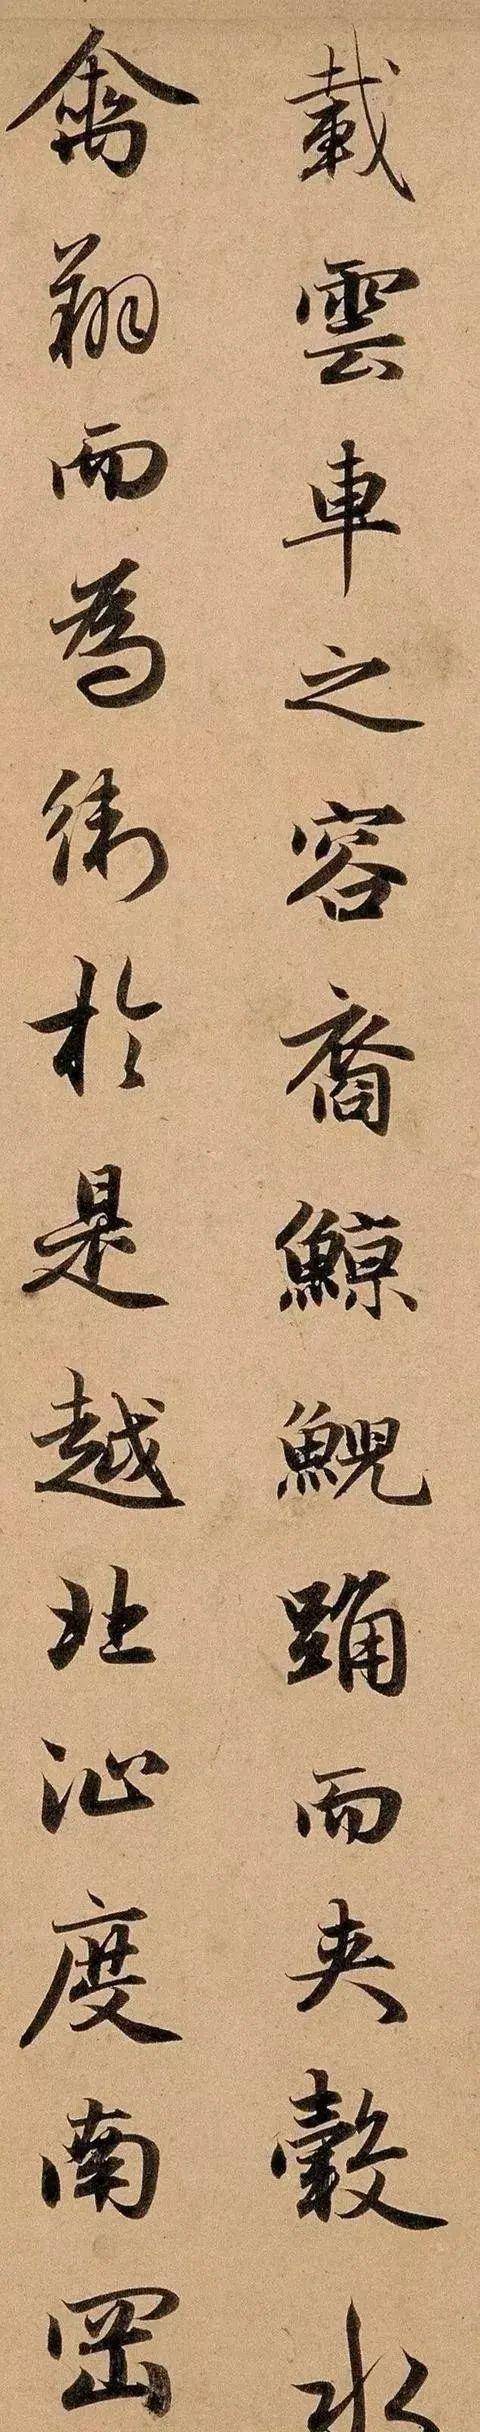 載雲車之容裔鯨鯢踊而夹轂水
禽翔而為衛於是越北沚度南岡